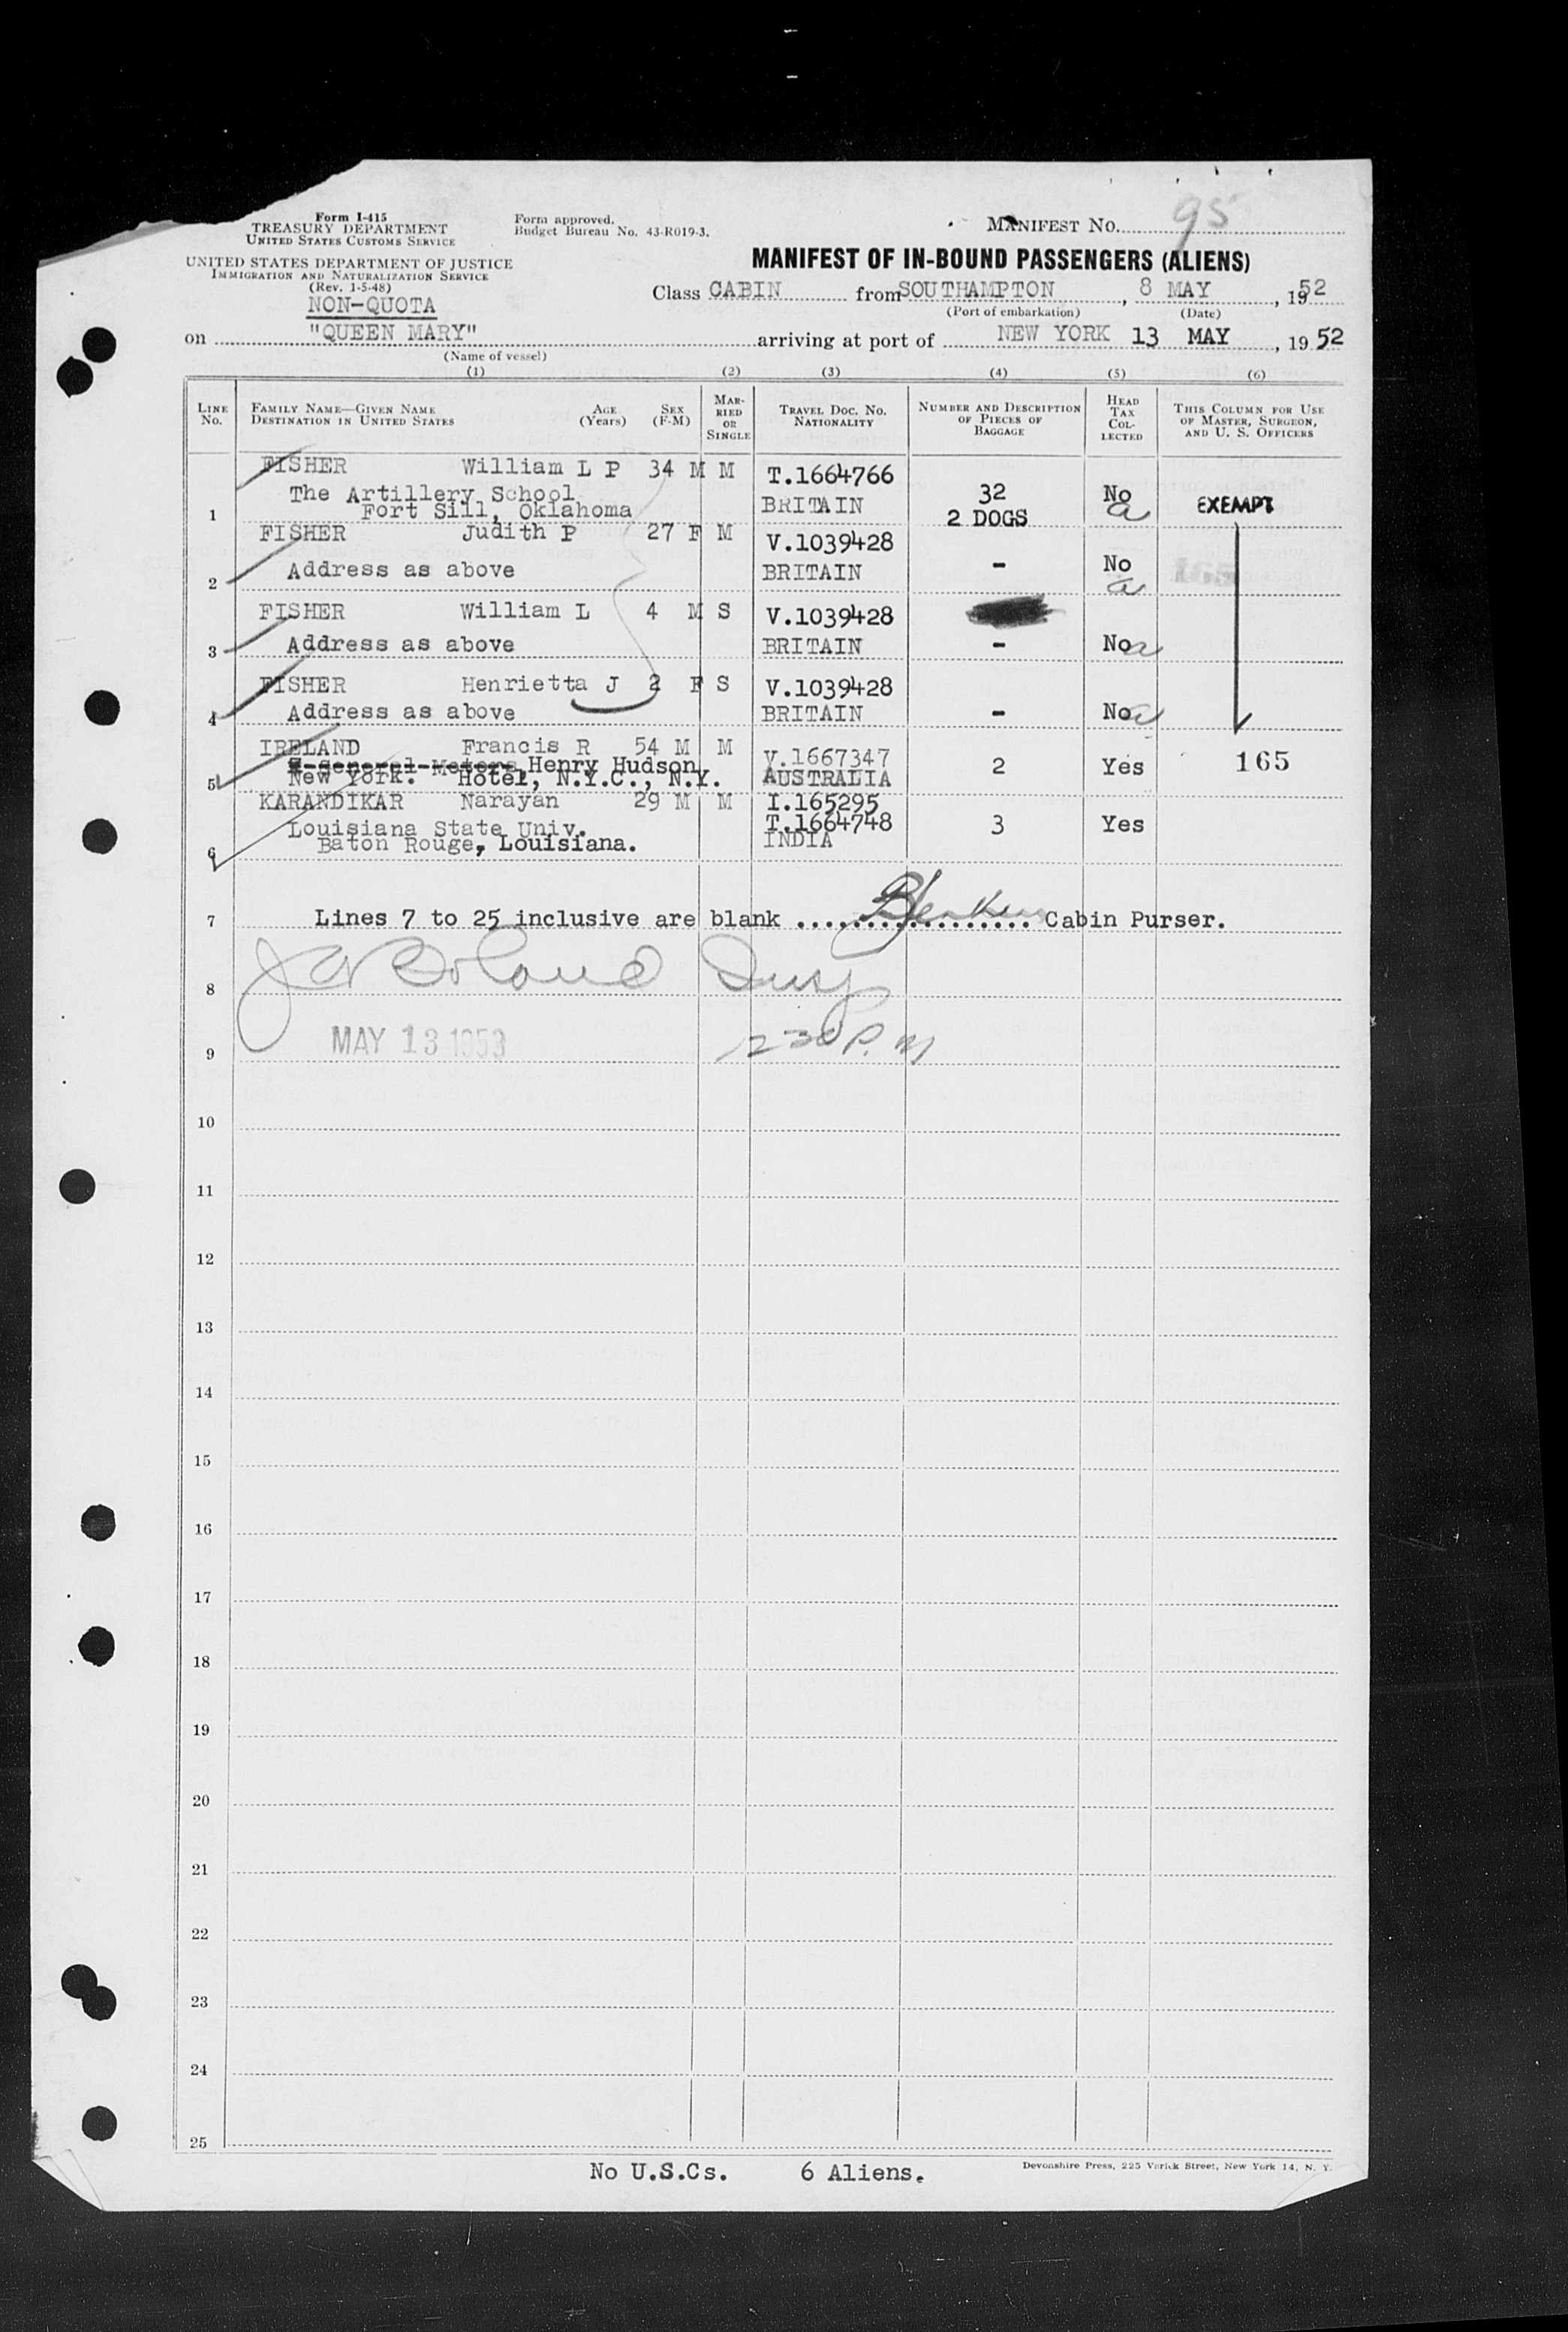 Form I-415
TREASURY DEPARTMENT
UNITED STATES CUSTOMS SERVICE
UNITED STATES DEPARTMENT OF JUSTICE
IMMIGRATION AND NATURALIZATION SERVICE
(Rev. 1-5-48)
NON-QUOTA
Form approved.
Budget Bureau No. 43-R019-3.
MANIFEST NO. 95
MANIFEST OF IN-BOUND PASSENGERS (ALIENS)
Class CABIN from SOUTHAMPTON, 8 MAY, 1952
(Port of embarkation) (Date)
on "QUEEN MARY" arriving at port of NEW YORK 13 MAY, 1952
(Name of vessel)
(1) (2) (3) (4) (5) (6)
LINE NO. FAMILY NAME—GIVEN NAME DESTINATION IN UNITED STATES AGE (Years) SEX (F-M) MARRIED OR SINGLE TRAVEL DOC. NO. NATIONALITY NUMBER AND DESCRIPTION OF PIECES OF BAGGAGE HEAD TAX COLLECTED THIS COLUMN FOR USE OF MASTER, SURGEON, AND U. S. OFFICERS
FISHER William L P 34 M M T.1664766
The Artillery School 32 No EXEMPT
1 Fort Sill, Oklahoma BRITAIN 2 DOGS a
FISHER Judith P 27 F M V.1039428
2 Address as above BRITAIN - No a
165
FISHER William L 4 M S V.1039428
3 Address as above BRITAIN - No a
FISHER Henrietta J 2 F S V.1039428
4 Address as above BRITAIN - No a
IRELAND Francis R 54 M M V.1667347
General Motors Henry Hudson
5 New York. Hotel, N.Y.C., N.Y. AUSTRALIA 2 Yes 165
KARANDIKAR Narayan 29 M M I.165295
Louisiana State Univ. T.1664748 3 Yes
6 Baton Rouge, Louisiana. INDIA
7 Lines 7 to 25 inclusive are blank .................. Cabin Purser.
8
9 MAY 13 1953 230 P.M
10
11
12
13
14
15
16
17
18
19
20
21
22
23
24
25
No U.S.Cs. 6 Aliens.
Devonshire Press, 225 Varick Street, New York 14, N. Y.